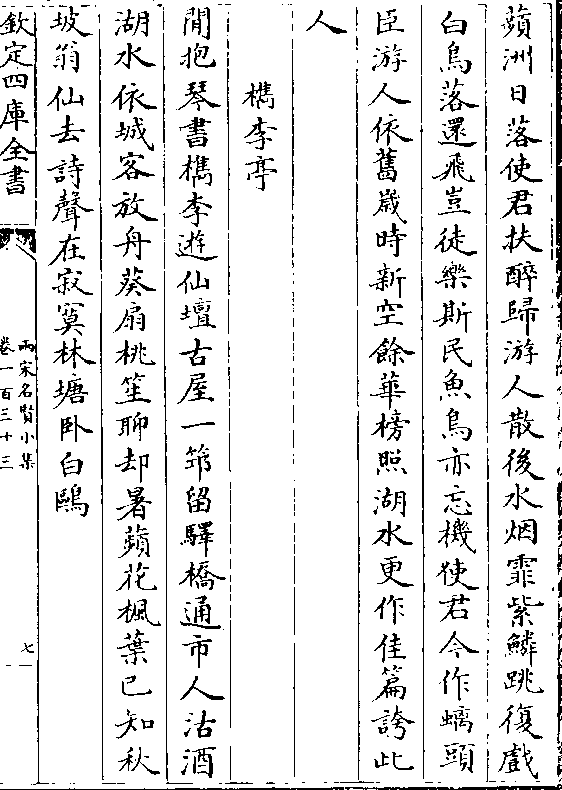 蘋洲日落使君扶醉歸游人散後水烟霏紫鱗跳復戲
白鳥落還飛豈徒樂斯民魚鳥亦忘機使君今作螭頭
臣游人依舊歲時新空餘華榜照湖水更作佳篇誇此
人
檇李亭
閒抱琴書檇李遊仙壇古屋一笻留驛橋通市人沽酒
湖水依城客放舟葵扇桃笙聊却暑蘋花楓葉已知秋
坡翁仙去詩聲在寂寞林塘卧白鷗
欽定四庫全書
兩宋名賢小集
卷一百三十三
七